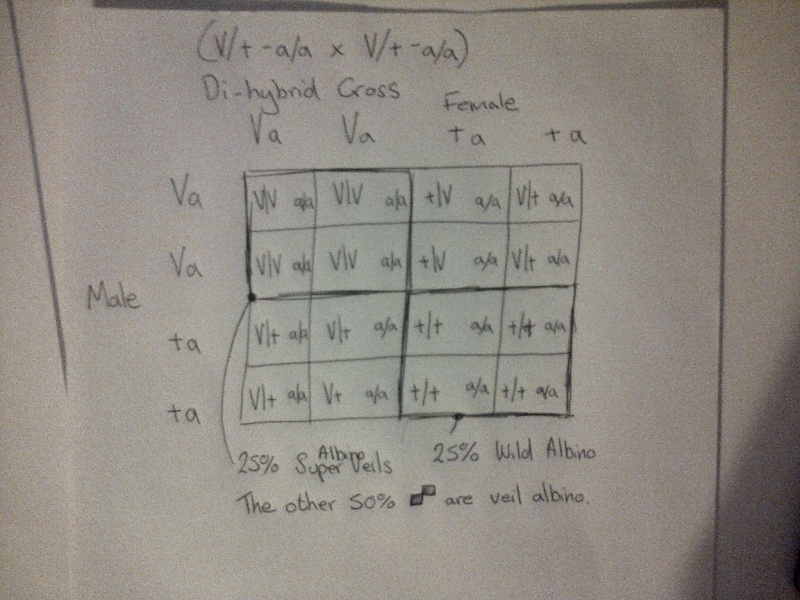 (V/+ - a/a x V/+ - a/a)
Di-hybrid Cross
Female
Va Va +a +a
Va V/V a/a V/V a/a +/V a/a V/+ a/a
Va V/V a/a V/V a/a +/V a/a V/+ a/a
Male
+a V/+ a/a V/+ a/a +/+ a/a +/+ a/a
+a V/+ a/a V+ a/a +/+ a/a +/+ a/a
25% Albino Super Veils
25% Wild Albino
The other 50% are veil albino.